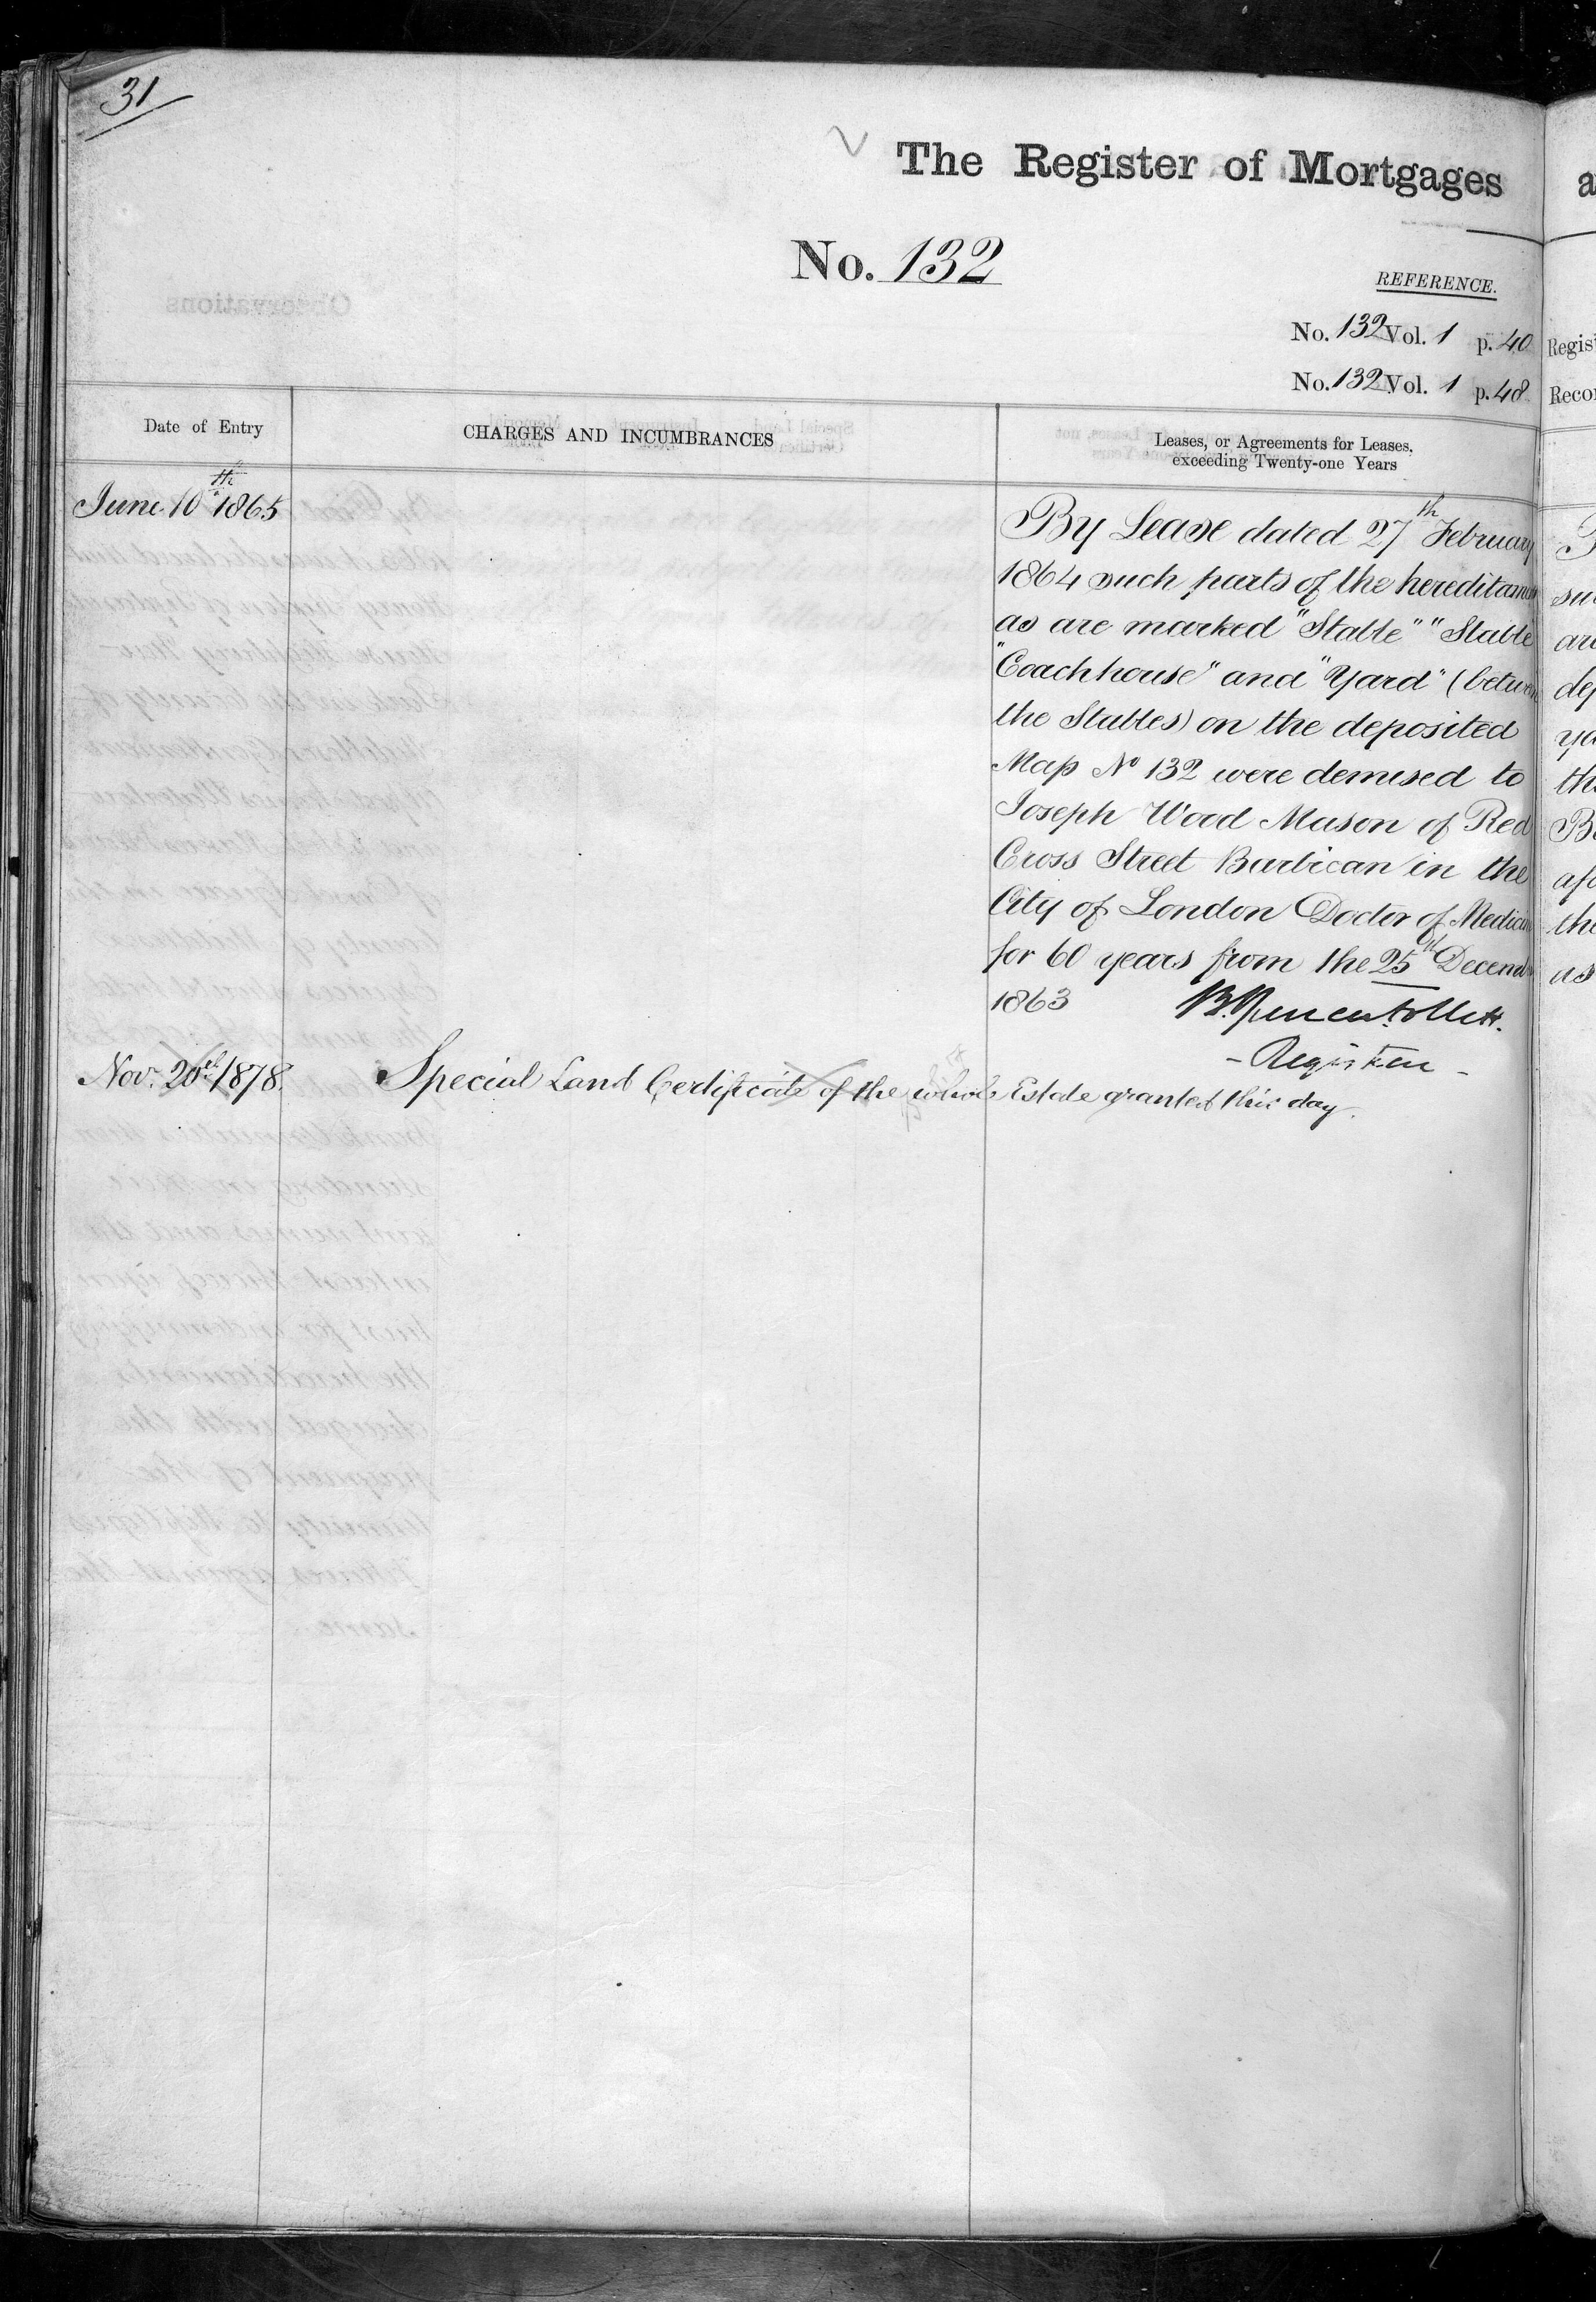 31
The Register of Mortgages
No. 132
REFERENCE.
No. 132 Vol. 1 p. 40
No. 132 Vol. 1 p. 48
Date of Entry
CHARGES AND INCUMBRANCES
Leases, or Agreements for Leases,
exceeding Twenty-one Years
June 10th 1865
By Lease dated 27th February
1864 such parts of the hereditam
as are marked "Stable" "Stable
"Coachhouse" and "Yard" (between
the Stables) on the deposited
Map No 132 were demised to
Joseph Wood Mason of Red
Cross Street Barbican in the
City of London Doctor of Medicin
for 60 years from the 25th Decemb
1863
Registrar
Nov. 20th 1878. Special Land Certificate of the whole Estate granted this day.